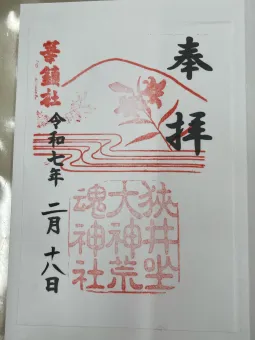 奉拝
華鎮社
令和七年 二月 十八日
狭井坐
大神荒
魂神社